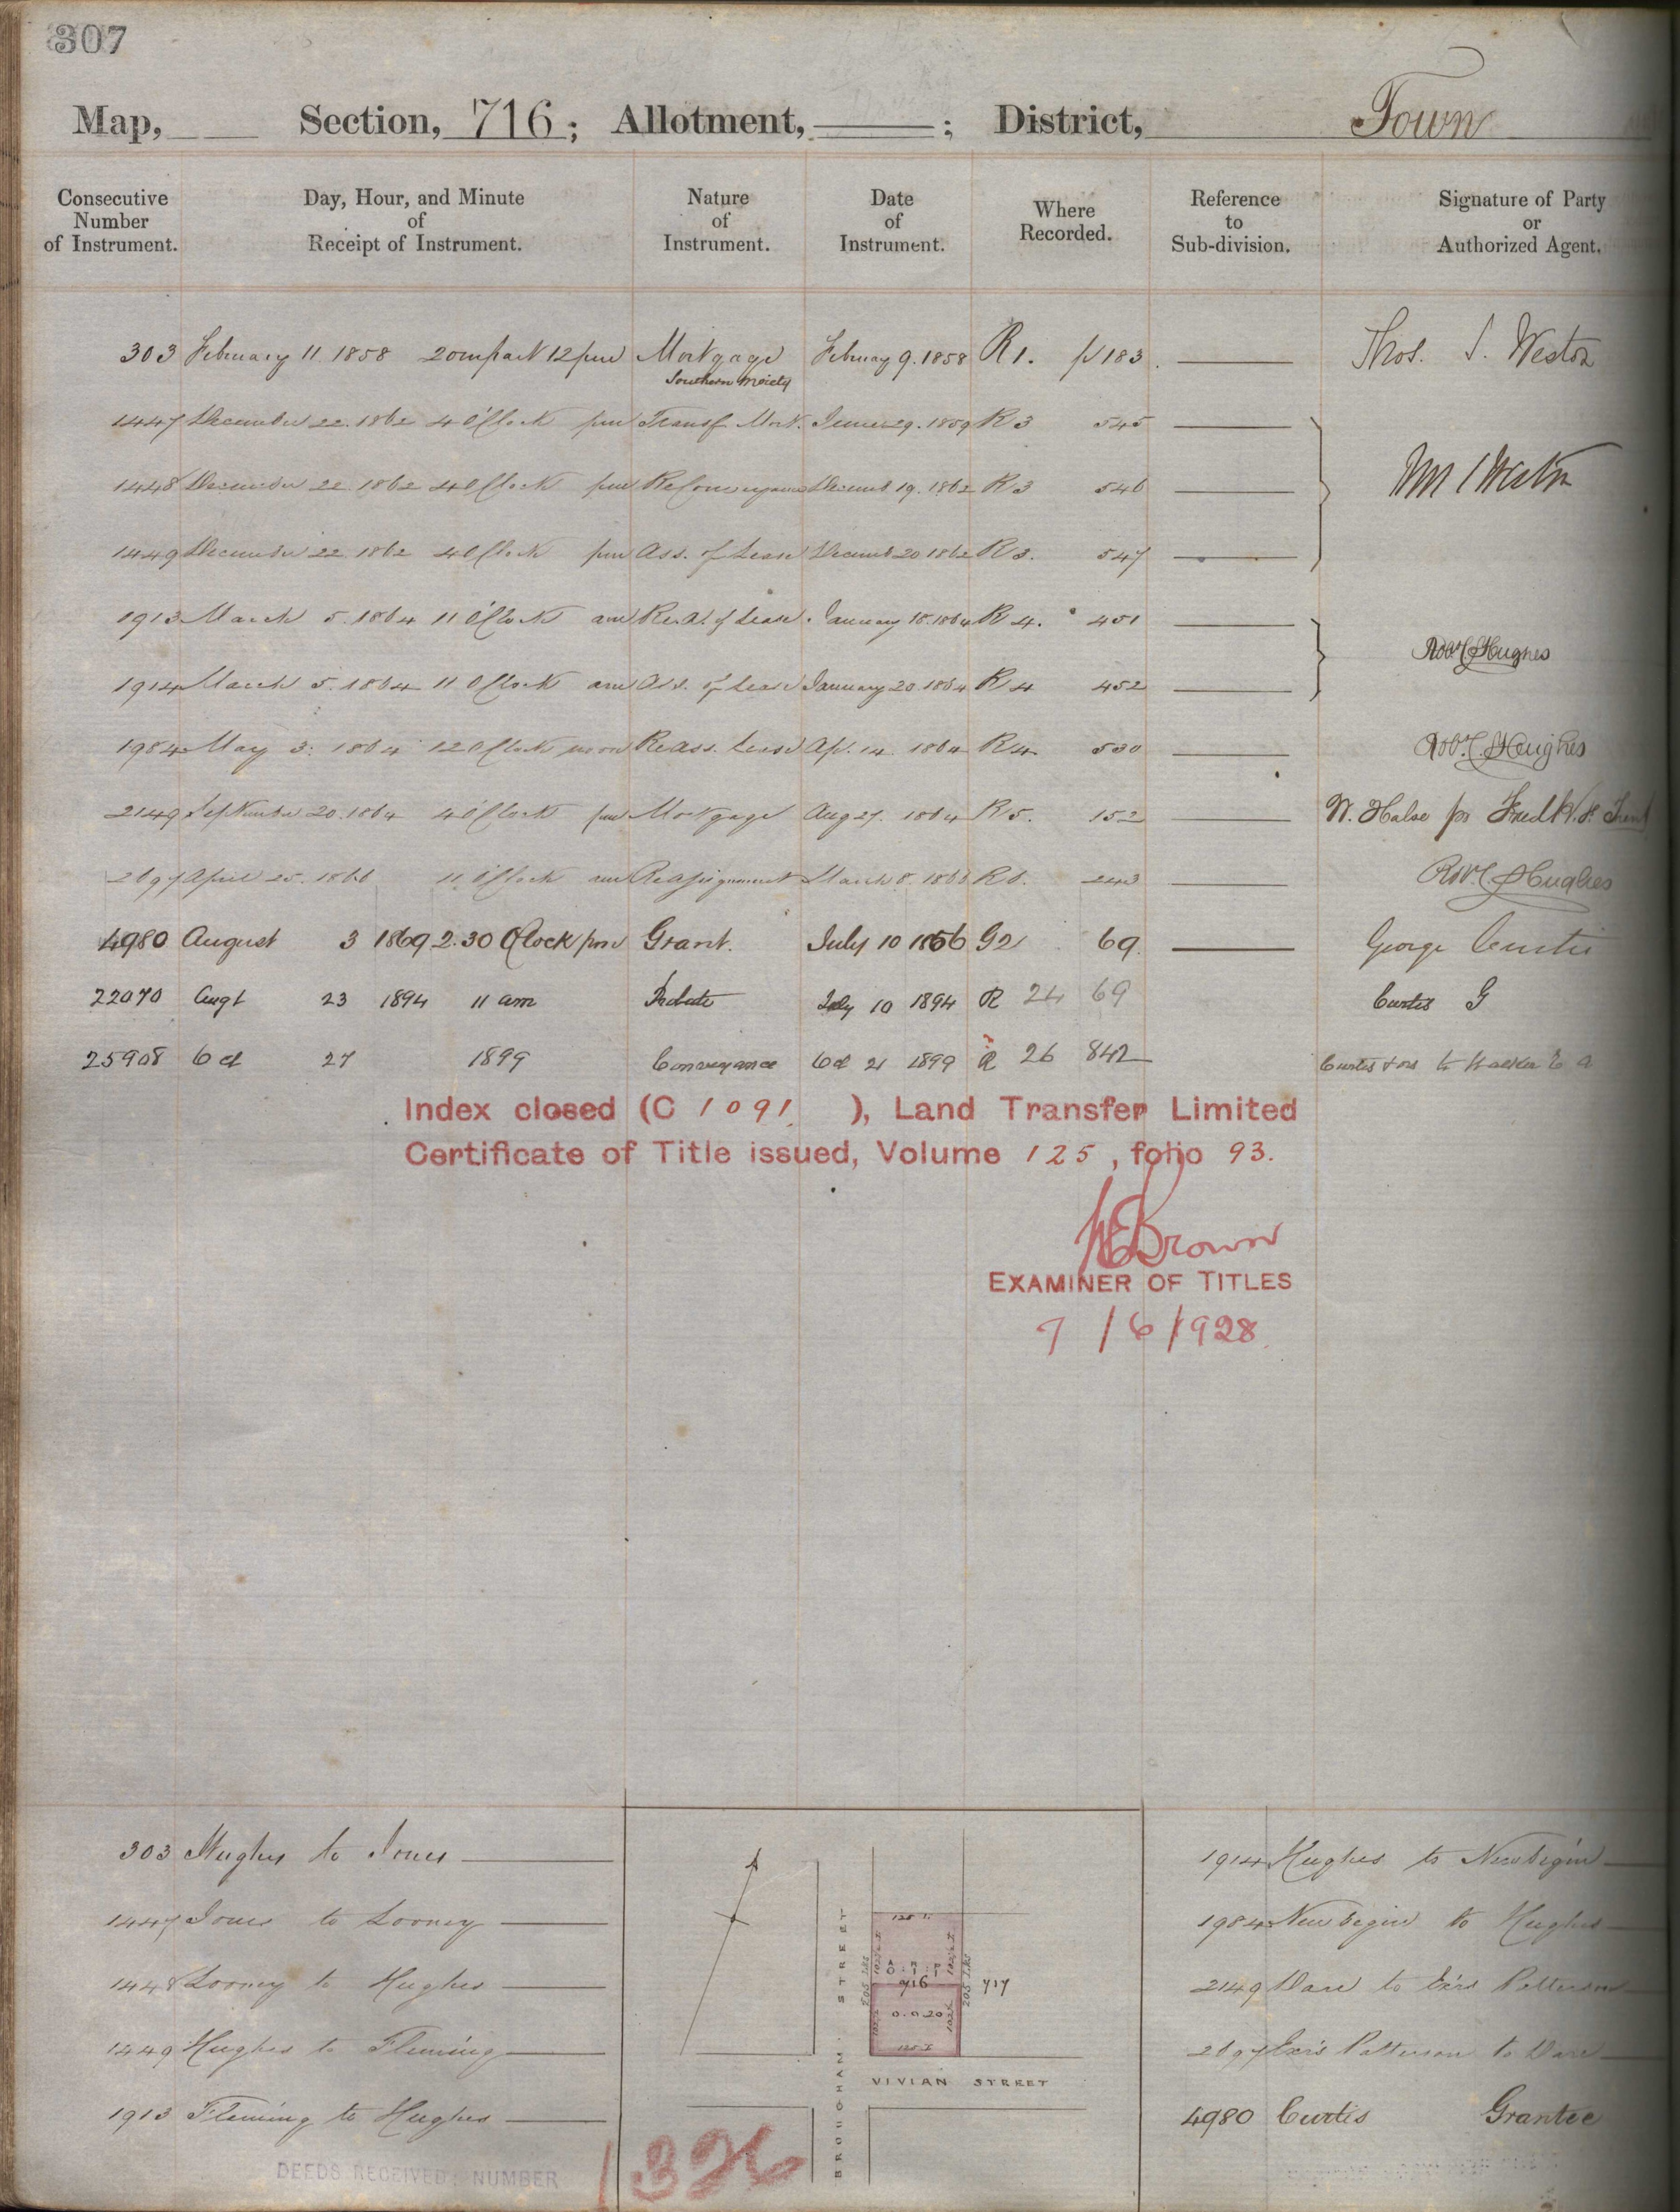 307
Map, Section, 716; Allotment, ; District, Town
Consecutive Number of Instrument.
Day, Hour, and Minute of Receipt of Instrument.
Nature of Instrument.
Date of Instrument.
Where Recorded.
Reference to Sub-division.
Signature of Party or Authorized Agent.
303 February 11. 1858 20 m past 12 pm Mortgage February 9. 1858 R 1. p 183. Thos. Weston
Southern Moiety
1447 December 22. 1862 4 O'Clock pm Transf. Mort. June 29. 1859 R 3 545
1448 December 22. 1862 4 O'Clock pm ReConveyance Decemb 19. 1862 R 3 546
1449 December 22. 1862 4 O'Clock pm Ass. of Lease Decemb 20 1862 R 3. 547
1913 March 5. 1864 11 O'Clock am of Lease January 18. 1864 R 4. 451 Robt Hughes
1914 March 5. 1864 11 O'Clock am Ass. of Lease January 20. 1864 R 4 452
1984 May 3. 1864 12 O'Clock noon Reass. Lease Ap. 14. 1864 R 4 530 Robt. Hughes
2149 September 20. 1864 4 O'Clock pm Mortgage Aug 27. 1864 R 5. 152 W. Halse for Fredk
2697 April 25. 1866 11 O'Clock am Reassignment March 8. 1866 243 Robt Hughes
4980 August 3 1869 2.30 O'Clock pm Grant. July 10 1856 G 2 69. George Curtis
22070 Augt 23 1894 11 am Probate July 10 1894 R 24 69 Curtis G
25908 Oct 27 1899 Conveyance Oct 21 1899 R 26 842 Curtis to Walker
Index closed (C 1091. ), Land Transfer Limited
Certificate of Title issued, Volume 125, folio 93.
Brown
EXAMINER OF TITLES
7/6/1928.
303 Hughes to Jones
1447 Jones to Looney
1448 Looney to Hughes
1449 Hughes to Fleming
1913 Fleming to Hughes
DEEDS RECEIVED: NUMBER
BROUGHAM STREET
716
717
0.0.20
205
VIVIAN STREET
1914 Hughes to Newbegin
1984 Newbegin to Hughes
2149 Dare to Exrs Patterson
2697 Exrs Patterson to Dare
4980 Curtis Grantee